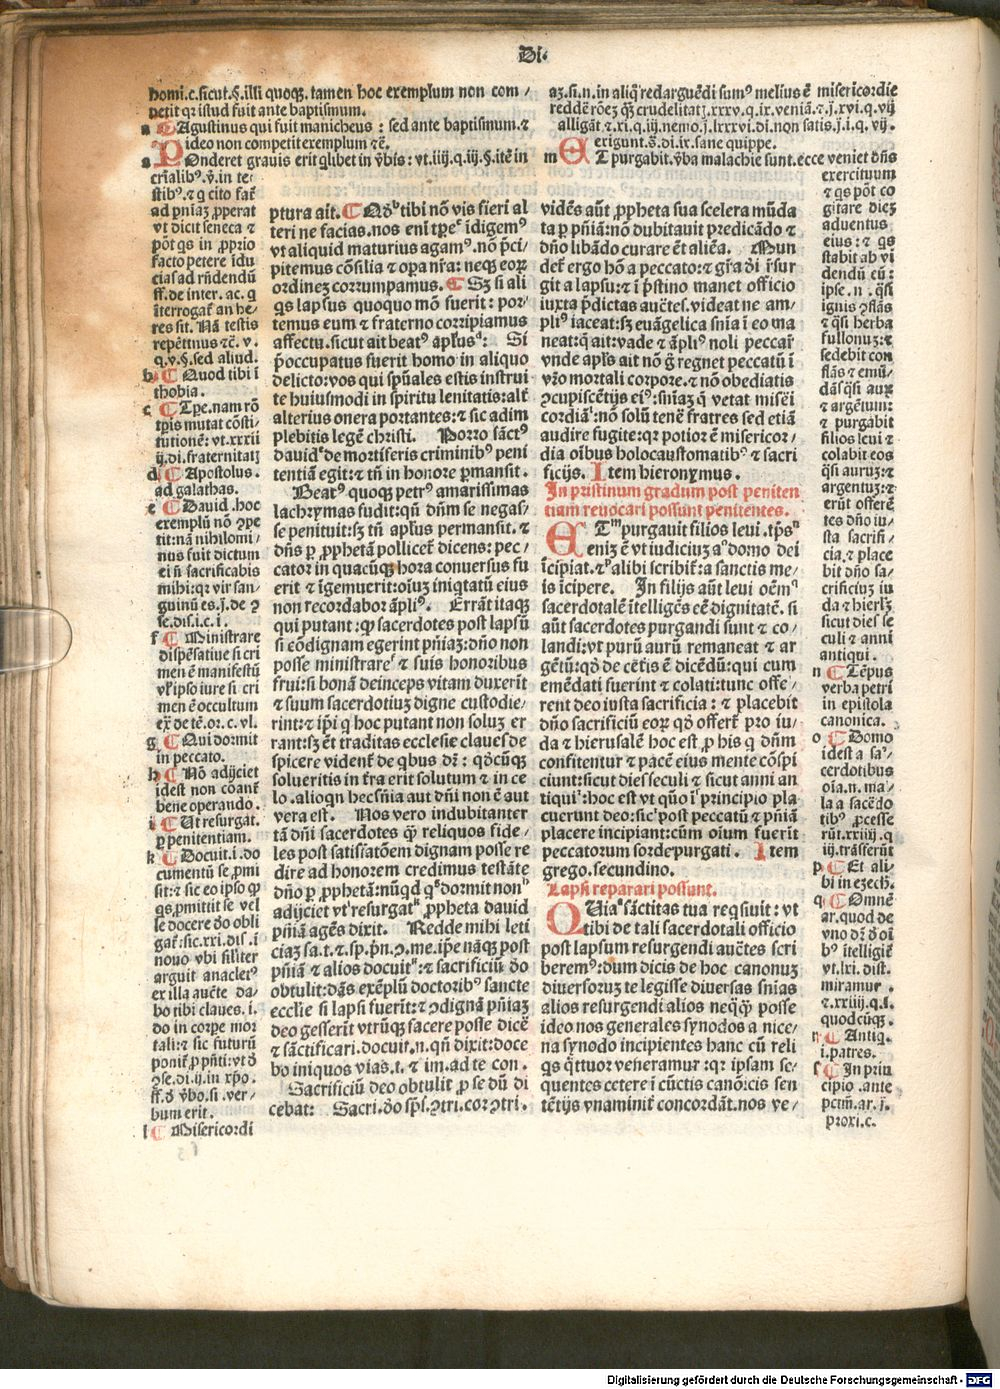 Di.
homi.c.sicut.§.illi quoqꝫ.tamen hoc exemplum non com/
petit qꝛ istud fuit ante baptismum.
a Augustinus qui fuit manicheus : sed ante baptismum.⁊
ideo non competit exemplum ⁊c̄.
a POnderet grauis erit qlibet in v̄bis : vt.iiij.q.iij.§.itē in
cr̄ialibꝰ.v̄.in te/
stibꝰ.⁊ q cito fat̄
ad pn̄iaꝫ ꝓperat
vt dicit seneca ⁊
pōt qs in ꝓprio
facto petere īdu
cias ad rn̄dendū
ff.de inter. ac. q
īterrogat̄ an he/
res sit. Nā testis
repētinus ⁊c̄. v.
q.v.§.sed aliud.
b Quod tibi ī
thobia.
c Tꝑe.nam rō
tꝑis mutat cōsti/
tutionē: vt.xxxii
ij.di.fraternitatꝫ
d Apostolus.
ad galathas.
e Dauid.hoc
exemplū nō ꝯpe
tit:nā nihilomi/
nus fuit dictum
ei ñ sacrificabis
mihi:qꝛ vir san/
guinū es.j.de ꝯ
se.dis.i.c.i.
f Ministrare
dispēsatiue si cri
men ē manifestū
vl̓ ipso iure si cri
men ē occultum
ex̄ de tē.oꝛ.c.vl.
g Qui dormit
in peccato.
h Nō adijciet
idest non cōant̄
bene operando.
i Ut resurgat.
ꝑ penitentiam.
k Docuit.i.do
cumentū se ꝓmi
sit:⁊ sic eo ipso ꝙ
qs ꝓmittit se vel
se docere ꝺo obli
gat̄:sic.xxi.dis.i
nouo vbi siliter
arguit anacletꝰ
ex illa aucte da/
bo tibi claues.i.
do in corꝑe moꝛ
tali:⁊ sic futurū
ponit̄ ꝓ pn̄ti:vt ꝺ
ꝯse.di.ij.in xp̄o.
ff.ꝺ v̄bo.si.ver/
bum erit.
l Misericordi
ptura ait. Qꝺ̓ tibi nō vis fieri al
teri ne facias.nos eni tꝑe idigemꝰ
vt aliquid maturius agamꝰ.nō p̄ci/
pitemus cōsilia ⁊ oꝑa nr̄a: neqꝫ eoꝝ
ordinez corrumpamus. Sꝫ si ali
qs lapsus quoquo mō fuerit : poꝛ/
temus eum ⁊ fraterno corripiamus
affectu.sicut ait beatꝰ apl̓us: Si
p̄occupatus fuerit homo in aliquo
delicto:vos qui spūales estis instrui
te huiusmodi in spiritu lenitatis:alt̄
alterius onera portantes:⁊ sic adim
plebitis legē christi. Porro sāctꝰ
dauid de mortiferis criminibꝰ peni
tentiā egit:⁊ tn̄ in honore ꝑmansit.
Beatꝰ quoqꝫ petrꝰ amarissimas
lachrymas fudit:qn̄ dn̄m se negas/
se penituit:sꝫ tn̄ apl̓us permansit.⁊
dn̄s ꝑ ꝓphetā pollicet̄ dicens: pec/
catoꝛ in quacūqꝫ hora conuersus fu
erit ⁊ īgemuerit:oīuꝫ iniqtatū eius
non recordaboꝛ āpliꝰ. Errāt itaqꝫ
qui putant :ꝙ sacerdotes post lapsū
si cōdignam egerint pn̄iaꝫ:dn̄o non
posse ministrare ⁊ suis honoribus
frui:si bonā deinceps vitam duxerit
⁊ suum sacerdotiuꝫ digne custodie/
rint:⁊ ip̄i q hoc putant non soluꝫ er
rant:sꝫ ēt traditas ecclesie claues de
spicere vident̄ de qbus dꝛ̄ : qdcūqꝫ
solueritis in tr̄a erit solutum ⁊ in ce
lo.alioqn hec sn̄ia aut dn̄i non ē aut
vera est. Nos vero indubitanter
tā dn̄i sacerdotes ꝙ̄ reliquos fide/
les post satisfatōem dignam posse re
dire ad honorem credimus testāte
dn̄o ꝑ ꝓphetā:nūqd q dormit non
adijciet vt resurgat ꝓpheta dauid
pn̄iā agēs dixit. Redde mihi leti
ciaꝫ sa.t.⁊ sp.pn.ꝯ.me.ip̄e nāqꝫ post
pn̄iā ⁊ alios docuit:⁊ sacrificiū ꝺo
obtulit:dās exēplū doctoribꝰ sancte
ecclie si lapsi fuerit:⁊ ꝯdignā pn̄iaꝫ
deo gesserit vtrūqꝫ facere posse dicē
⁊ sāctificari.docuit.n.qn̄ dixit:doce
bo iniquos vias.t.⁊ im.ad te con.
Sacrificiū deo obtulit ꝓ se dū di
cebat: Sacri.ꝺo sp̄s.ꝯtri.coꝛ ꝯtri.
aꝫ.si.n.in aliq̄ redarguēdi sumꝰ melius ē misericoꝛdie
reddē rōeꝫ qꝫ̄ crudelitatꝫ.xxxv.q.ix.veniā.⁊.j.xvi.q.vij
alligāt.⁊.xi.q.iij.nemo.j.lxxxvi.di.non satis.j.i.q. vij.
exigunt.s̄.di.ix.sane quippe.
m ET purgabit.v̄ba malachie sunt.ecce veniet dn̄s
exercituum
⁊ qs pōt co
gitare dieꝫ
aduentus
eius : ⁊ qs
stabit ab vi
dendū eū :
ipse .n .qsi
ignis ꝯflās
⁊ qsi herba
fullonuꝫ :⁊
sedebit con
flās ⁊ emū/
dās qsi aux̄
⁊ argētum:
⁊ purgabit
filios leui ⁊
colabit eos
qsi auruꝫ:⁊
argentuꝫ:⁊
erūt offerē
tes dn̄o iu/
sta sacrifi/
cia.⁊ place
bit dn̄o sa/
crificiuꝫ iu
da ⁊ hierlꝫ
sicut dies se
culi ⁊ anni
antiqui .
n Tēpus
verba petri
in epistola
canonica.
o Domo
idest a sa/
cerdotibus
oīa.n. ma/
la a sacēdo
tibꝰ ꝓcesse
rūt.xxiiij.q
iij.trāsferūt
p Et ali/
bi in ezech.
q Omnē
ar.quod de
vno dꝛ̄ ꝺ oī
bꝰ ītelligit̄
vt.lxi.dist.
miramur .
⁊.xxiiij.q.i.
quodcūqꝫ.
r Antiq.
i.patres.
s In prin
cipio .ante
pctm̄.ar.j.
proxi.c.
vidēs aūt ꝓpheta sua scelera mūda
ta ꝑ pn̄iā:nō dubitauit predicādo ⁊
dn̄o libādo curare ēt aliēa. Mun
det̄ ergo hō a peccato:⁊ gr̄a ꝺi r̄sur
git a lapsu:⁊ ī p̄stino manet officio
iuxta p̄dictas auctes.videat ne am/
pliꝰ iaceat:sꝫ euāgelica sn̄ia ī eo ma
neat:q ait:vade ⁊ āpliꝰ noli peccar̄
vnde apl̓s ait nō ḡ regnet peccatū ī
vr̄o mortali corpore.⁊ nō obediatis
ꝯcupiscētijs eiꝰ:sn̄iaꝫ q vetat misēri
cordiā:nō solū tenē fratres sed etiā
audire fugite:qꝛ potioꝛ ē misericoꝛ/
dia oībus holocaustomatibꝰ ⁊ sacri
ficijs. Item hieronymus.
In pristinum gradum post peniten
tiam reuocari possunt penitentes.
ETᵐ purgauit filios leui.tp̄sⁿ
eniꝫ ē vt iudiciuꝫ a domo dei
īcipiat.⁊ alibi scribit̄:a sanctis me/
is īcipere. In filijs aūt leui oēm
sacerdotalē ītelligēs eē dignitatē. si
aūt sacerdotes purgandi sunt ⁊ co/
landi:vt purū aurū remaneat ⁊ ar
gētū:qd̓ de cēt̓is ē dicēdū:qui cum
emēdati fuerint ⁊ colati:tunc offe/
rent deo iusta sacrificia : ⁊ placebit
dn̄o sacrificiū eoꝝ qd̓ offert̄ pro iu/
da ⁊ hierusalē hoc est ꝓ his q dn̄m
confitentur ⁊ pacē eius mente cōspi
ciunt:sicut dies seculi ⁊ sicut anni an
tiqui:hoc est vt quō ī principio pla
cuerunt deo:sic post peccatū ⁊ pn̄iā
placere incipiant:cūm oīum fuerit
peccatorum sorde purgati. Item
grego.secundino.
Lapsi reparari possunt.
QUia sāctitas tua reqsiuit : vt
tibi de tali sacerdotali officio
post lapsum resurgendi auctes scri
beremꝰ:dum dicis de hoc canonuꝫ
diuersoruꝫ te legisse diuersas sn̄ias
alios resurgendi alios neqꝙ̄ posse
ideo nos generales synodos a nice/
na synodo incipientes hanc cū reli
qs qttuor veneramur :qꝛ ipsam se/
quentes cetere ī cūctis canō:cis sen
tētijs vnaminit̄ concordāt.nos ve/
Digitalisierung gefördert durch die Deutsche Forschungsgemeinschaft - DFG